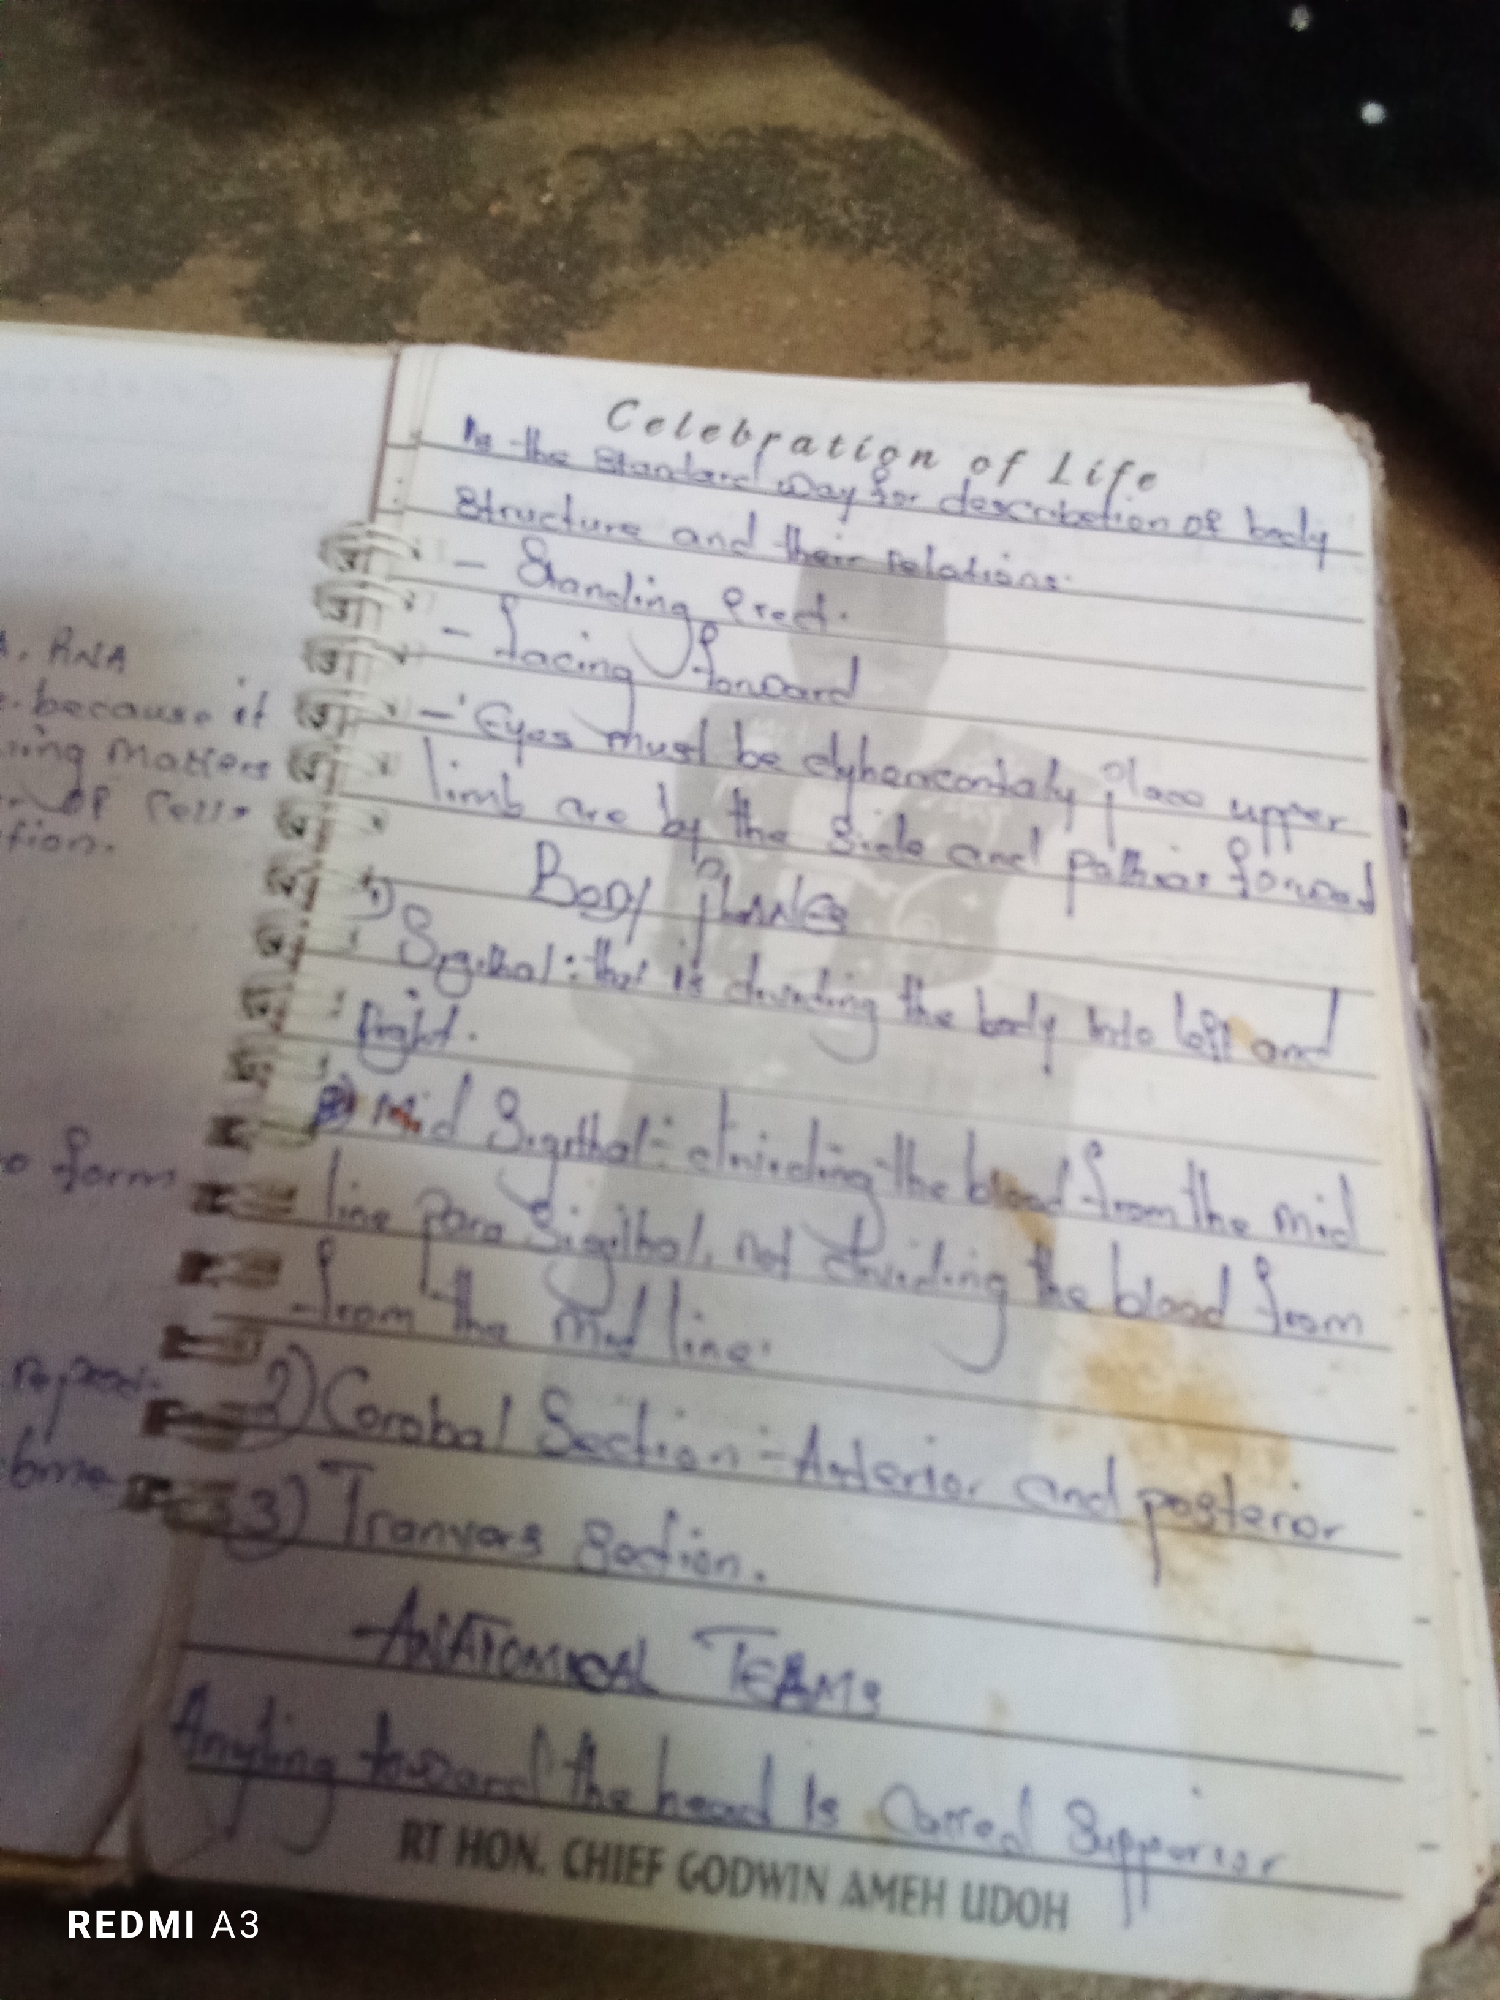 Celebration of Life
is the standard way for describetion of body
structure and their relations.
- Standing erect.
- facing forward
- Eyes must be place upper
limb are by the side and forward
Body planes
1) Sigithal: that is dividing the body into left and
right.
Mid Sigithal:- dividing the blood from the mid
line para Sigithal, not dividing the blood from
from the mid line.
2) Corobal Section:- Anterior and posterior
3) Tranvers Section.
ANATOMICAL TERMS
Anyting toward the head is Carred Supporior
RT HON. CHIEF GODWIN AMEH UDOH
RNA
because it
ing matters
of Cells
tion.
form
REDMI A3